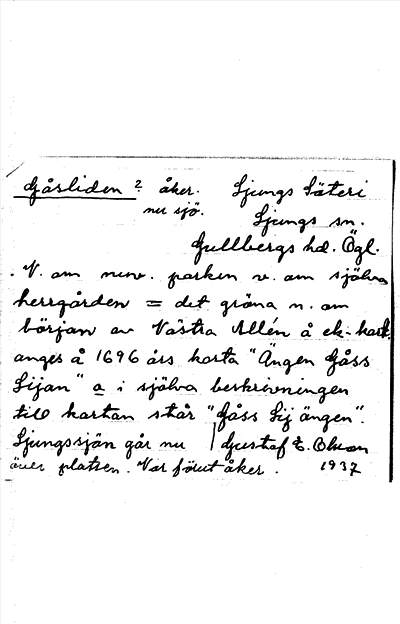 Gåsliden ? åker. Ljungs Säteri
nu sjö. Ljungs sn.
Gullbergs hd. Ögl.
V. om nuv. parken v. om själva
herrgården = det gröna n. om
början av Västra Allén å ek. kart.
anges å 1696 års karta "Ängen Gåss
Lijan" a i själva beskrivningen
till kartan står "Gåss Lij ängen".
Ljungssjön går nu Gustaf E. Olsson
över platsen. Var förut åker. 1937